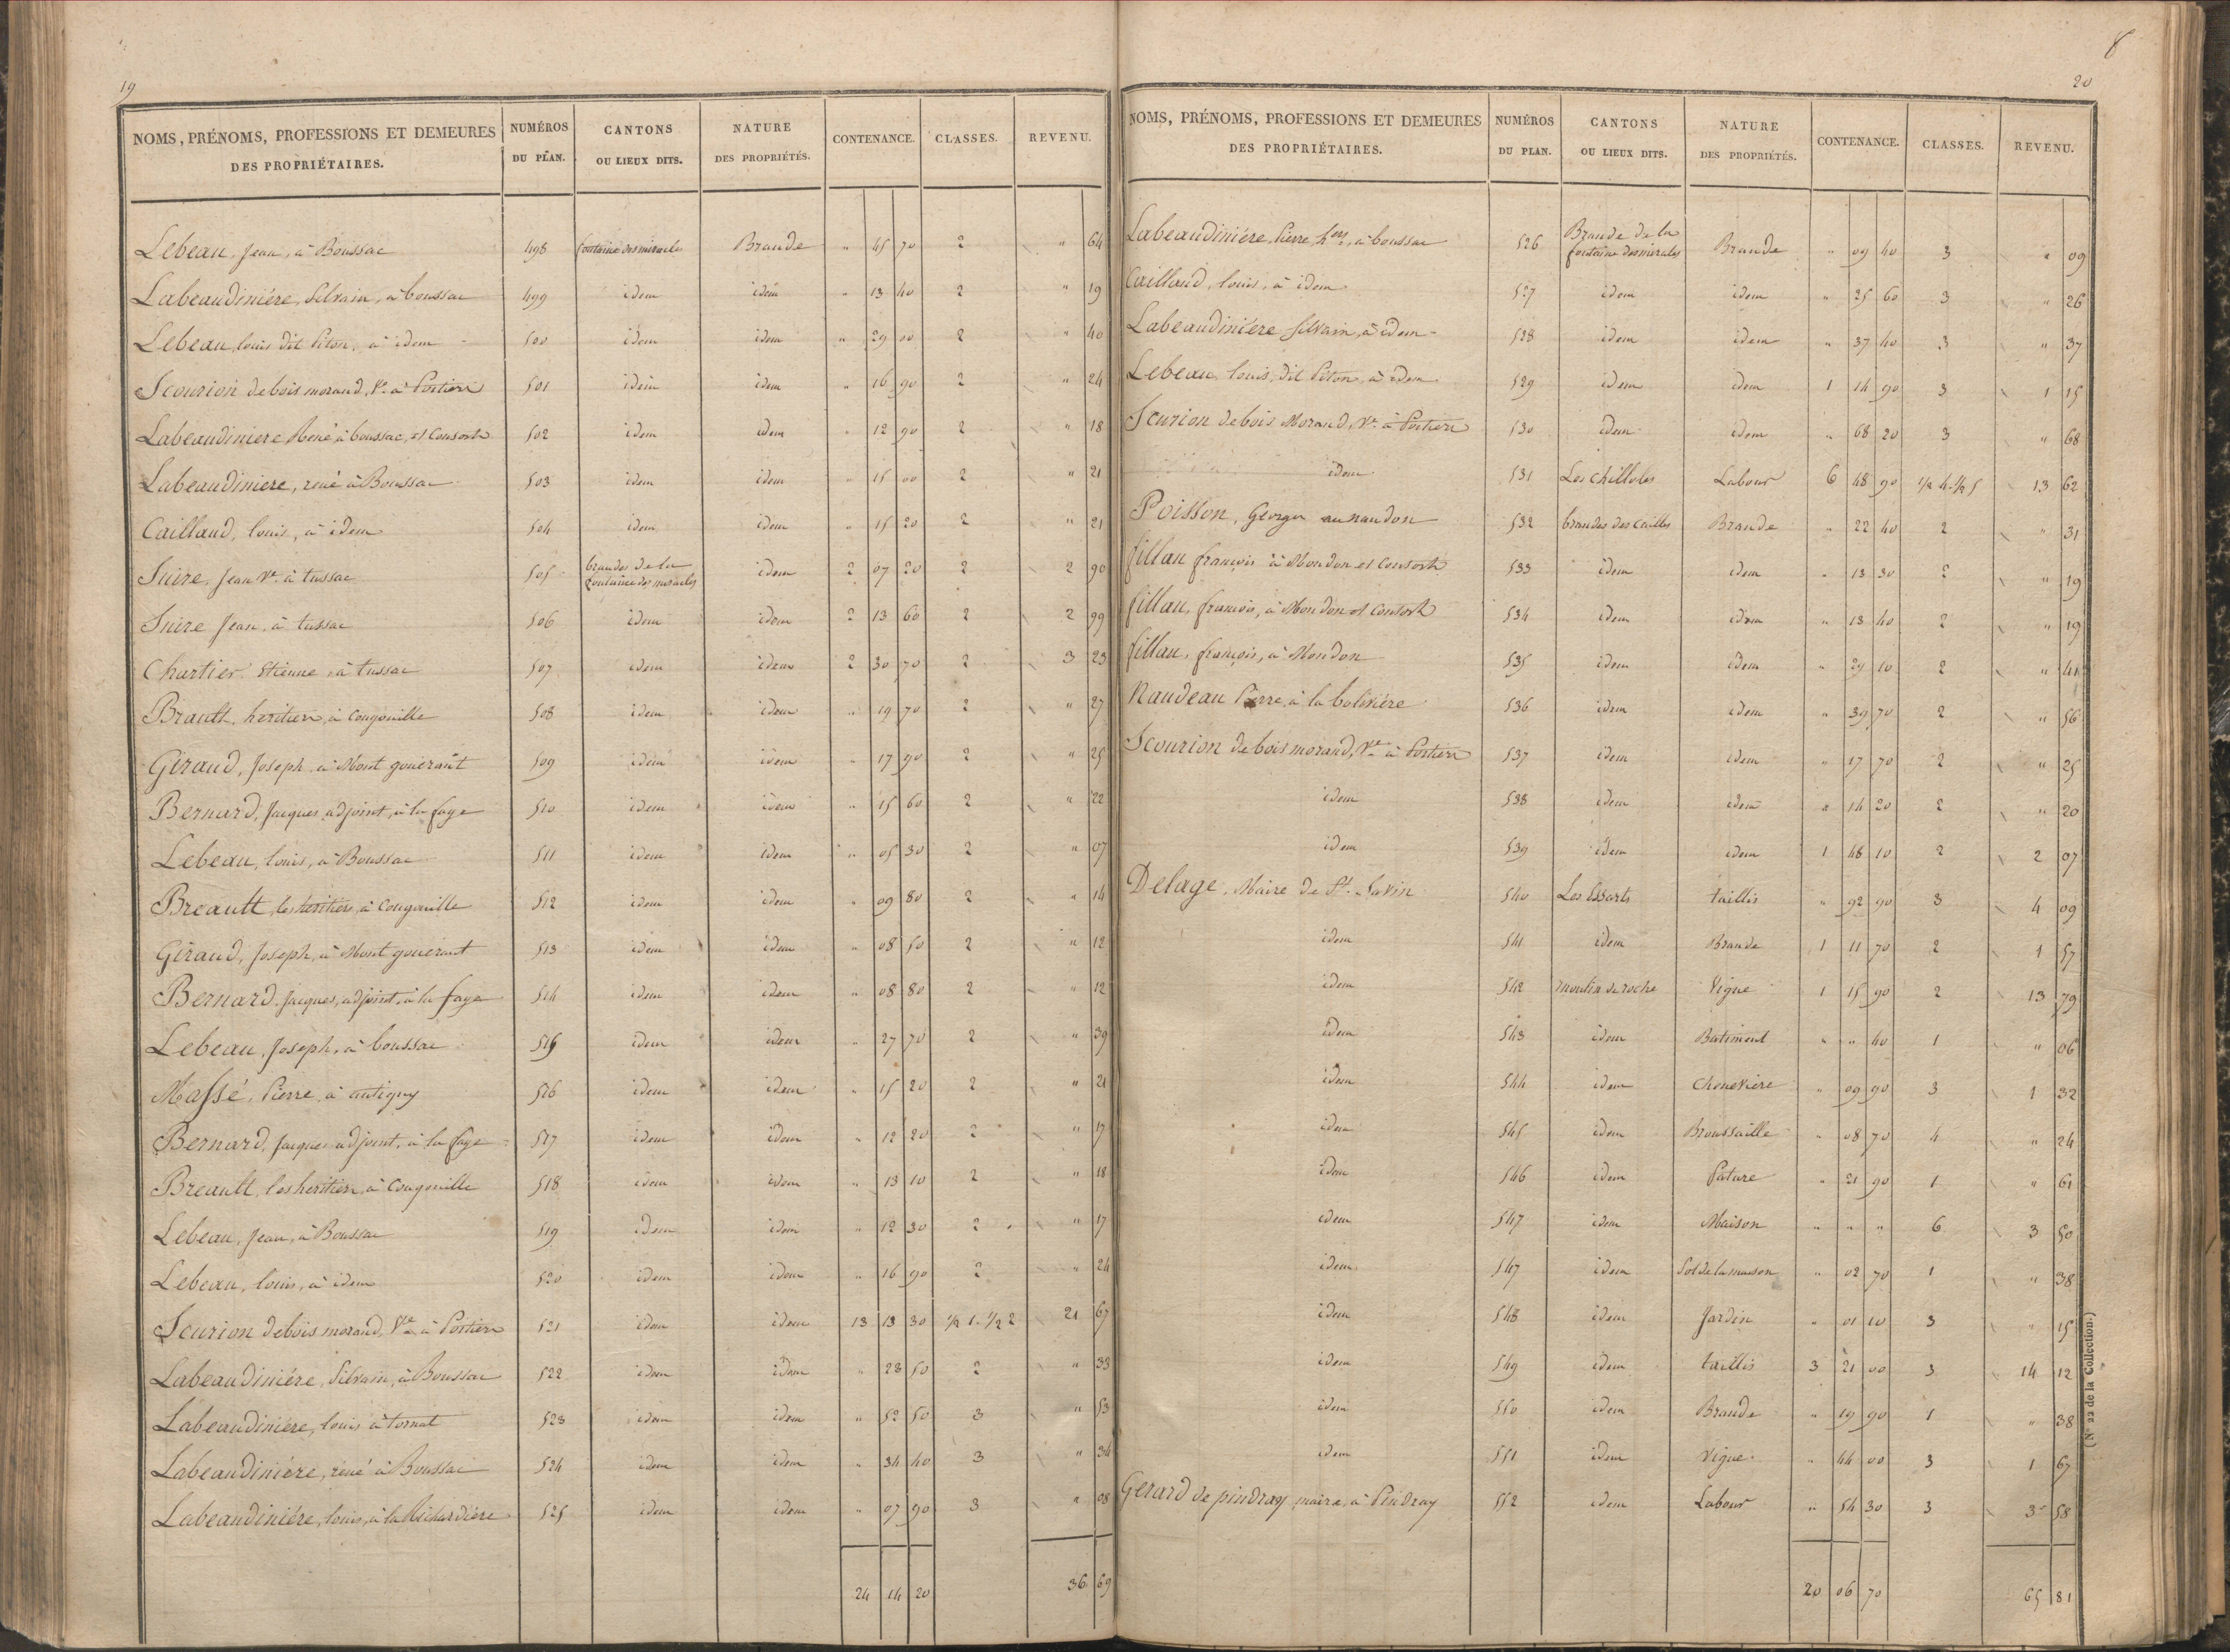 19
NOMS, PRÉNOMS, PROFESSIONS ET DEMEURES DES PROPRIÉTAIRES. NUMÉROS DU PLAN. CANTONS OU LIEUX DITS. NATURE DES PROPRIÉTÉS. CONTENANCE. CLASSES. REVENU.
Lebeau, Jean, à Boussac 498 fontaine des miracles Brande " 45 70 2 " 64
Labeaudiniére, Silvain, à boussac 499 idem idem " 13 40 2 " 19
Lebeau, louis dit Piton, à idem 500 idem idem " 29 00 2 " 40
Scourion debois morand, Ve à Poitiers 501 idem idem " 16 90 2 " 24
Labeaudiniere René à boussac, et Consorts 502 idem idem " 12 90 2 " 18
Labeaudiniere, rené à Boussac 503 idem idem " 15 00 2 " 21
Caillaud, louis, à idem 504 idem idem " 15 20 2 " 21
Suire, Jean Ve à tussac 505 brandes de la fontaine des miracles idem 2 07 20 2 2 90
Suire Jean, à tussac 506 idem idem 2 13 60 2 2 99
Chartier Etienne, à tussac 507 idem idem 2 30 70 2 3 23
Brault, heritiers, à Cougouille 508 idem idem " 19 70 2 " 27
Giraud, Joseph, à Mont gouerant 509 idem idem " 17 90 2 " 25
Bernard, Jacques adjoint, à la faye 510 idem idem " 15 60 2 " 22
Lebeau, louis, à Boussac 511 idem idem " 05 30 2 " 07
Breault, les heritiers, à Cougouille 512 idem idem " 09 80 2 " 14
Giraud, Joseph, à Mont gouerant 513 idem idem " 08 50 2 " 12
Bernard, Jacques, adjoint, à la faye 514 idem idem " 08 80 2 " 12
Lebeau, Joseph, à boussac 515 idem idem " 27 70 2 " 39
Massé, Pierre, à antigny 516 idem idem " 15 20 2 " 21
Bernard, Jacques adjoint, à la faye 517 idem idem " 12 20 2 " 17
Breault, les heritiers, à Cougouille 518 idem idem " 13 10 2 " 18
Lebeau, Jean, à Boussac 519 idem idem " 12 30 2 " 17
Lebeau, louis, à idem 520 idem idem " 16 90 2 " 24
Scurion debois morand, Ve à Poitiers 521 idem idem 13 13 30 1/2 1. 1/2 2 21 67
Labeaudiniére, Silvain, à Boussac 522 idem idem " 23 50 2 " 33
Labeaudiniére, louis à tornat 523 idem idem " 52 50 3 " 53
Labeaudiniére, rené à Boussac 524 idem idem " 34 40 3 " 34
Labeaudiniére, louis, à la Richardiere 525 idem idem " 07 90 3 " 08
24 14 20 36 69
8
20
NOMS, PRÉNOMS, PROFESSIONS ET DEMEURES DES PROPRIÉTAIRES. NUMÉROS DU PLAN. CANTONS OU LIEUX DITS. NATURE DES PROPRIÉTÉS. CONTENANCE. CLASSES. REVENU.
Labeaudiniére, Pierre, hers, à boussac 526 Brande de la fontaine des miracles Brande " 09 40 3 " 09
Caillaud, louis, à idem 527 idem idem " 25 60 3 " 26
Labeaudiniére Silvain, à idem 528 idem idem " 37 40 3 " 37
Lebeau, louis, dit Piton, à idem 529 idem idem 1 14 90 3 1 15
Scurion debois Morand, Ve à Poitiers 530 idem idem " 68 20 3 " 68
idem 531 Les Chilloles Labour 6 48 90 1/2 4. 1/2 5 13 62
Poisson, Georges au naudon 532 brandes des Cailles Brande " 22 40 2 " 31
fillau françois à Mondon et Consorts 533 idem idem " 13 30 2 " 19
fillau, françois, à Mondon et Consorts 534 idem idem " 13 40 2 " 19
fillau, françois, à Mondon 535 idem idem " 29 10 2 " 41
Naudeau Pierre, à la boliniére 536 idem idem " 39 70 2 " 56
Scourion debois morand, Ve à Poitiers 537 idem idem " 17 70 2 " 25
idem 538 idem idem " 14 20 2 " 20
idem 539 idem idem 1 48 10 2 2 07
Delage, Maire de St. Savin 540 Les Essarts taillis " 92 90 3 4 09
idem 541 idem Brande 1 11 70 2 1 57
idem 542 moulin de roche Vigne 1 15 90 2 13 79
idem 543 idem Batiment " " 40 1 " 06
idem 544 idem Cheneviere " 09 90 3 1 32
idem 545 idem Broussaille " 08 70 4 " 24
idem 546 idem Pature " 21 90 1 " 61
idem 547 idem Maison " " " 6 3 50
idem 547 idem Sol de la maison " 02 70 1 " 38
idem 548 idem Jardin " 01 10 3 " 15
idem 549 idem taillis 3 21 00 3 14 12
idem 550 idem Brande " 19 90 1 " 38
idem 551 idem Vigne " 44 00 3 1 67
Gerard de pindray, maire, à Pindray 552 idem Labour " 54 30 3 3 58
20 06 70 65 81
(N° 22 de la Collection.)